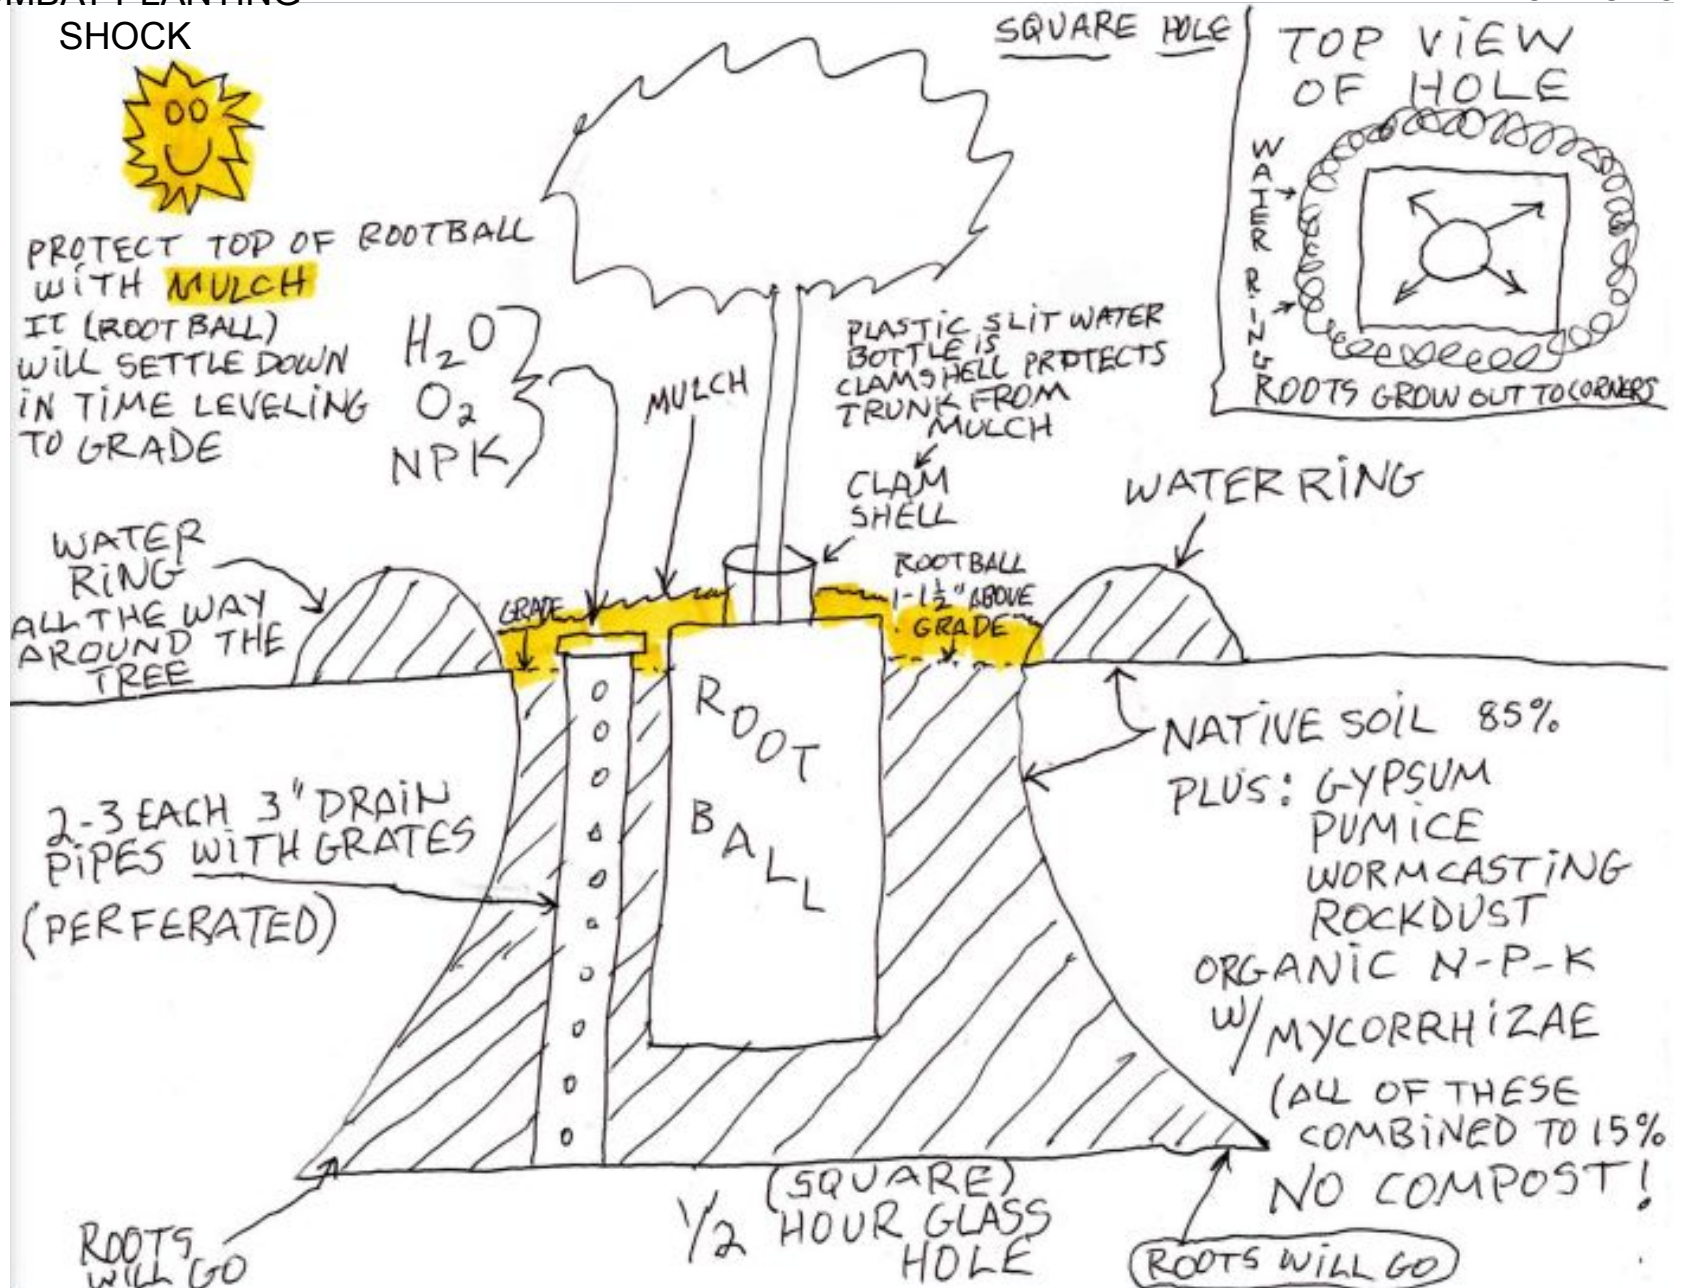 SHOCK
SQUARE HOLE
TOP VIEW
OF HOLE
WATER RING
ROOTS GROW OUT TO CORNERS
PROTECT TOP OF ROOTBALL
WITH MULCH
IT (ROOT BALL)
WILL SETTLE DOWN
IN TIME LEVELING
TO GRADE
H2O
O2
NPK
MULCH
PLASTIC SLIT WATER
BOTTLE IS
CLAMSHELL PROTECTS
TRUNK FROM
MULCH
CLAM
SHELL
WATER RING
WATER
RING
ALL THE WAY
AROUND THE
TREE
GRADE
ROOTBALL
1-1½" ABOVE
GRADE
ROOT
BALL
2-3 EACH 3" DRAIN
PIPES WITH GRATES
(PERFERATED)
NATIVE SOIL 85%
PLUS: GYPSUM
PUMICE
WORMCASTING
ROCKDUST
ORGANIC N-P-K
W/MYCORRHIZAE
(ALL OF THESE
COMBINED TO 15%
NO COMPOST!
(SQUARE)
1/2 HOUR GLASS
HOLE
ROOTS
WILL GO
ROOTS WILL GO